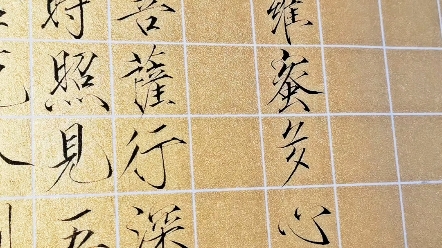 羅蜜多心
菩薩行深
時照見五